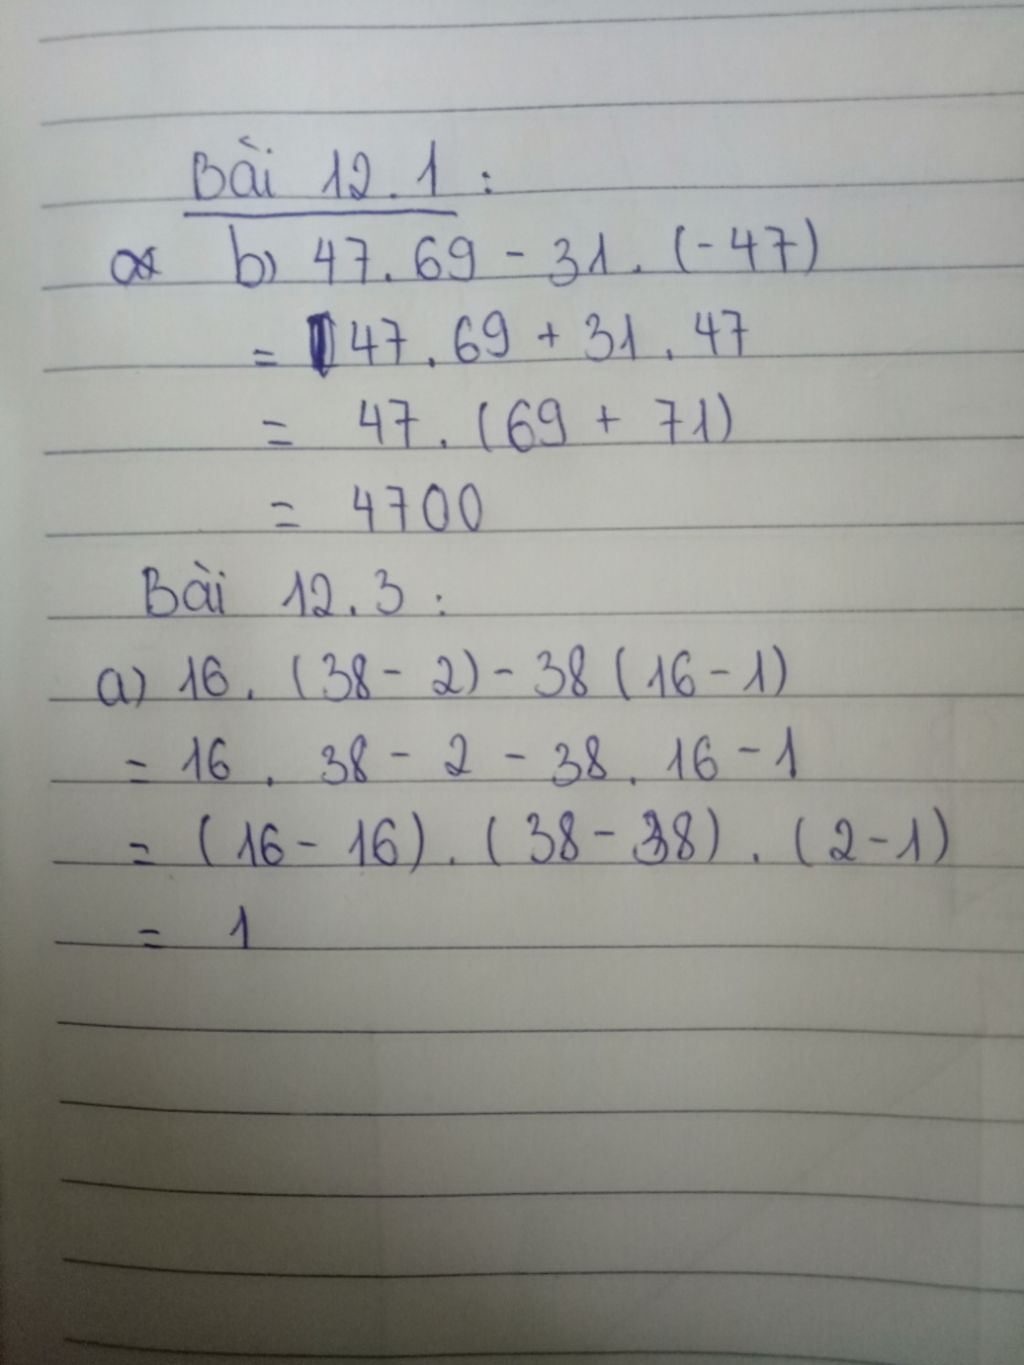 Bài 12.1:
b) 47.69 - 31.(-47)
= 47.69 + 31.47
= 47.(69 + 71)
= 4700
Bài 12.3:
a) 16.(38 - 2) - 38(16 - 1)
= 16.38 - 2 - 38.16 - 1
= (16 - 16).(38 - 38).(2 - 1)
= 1